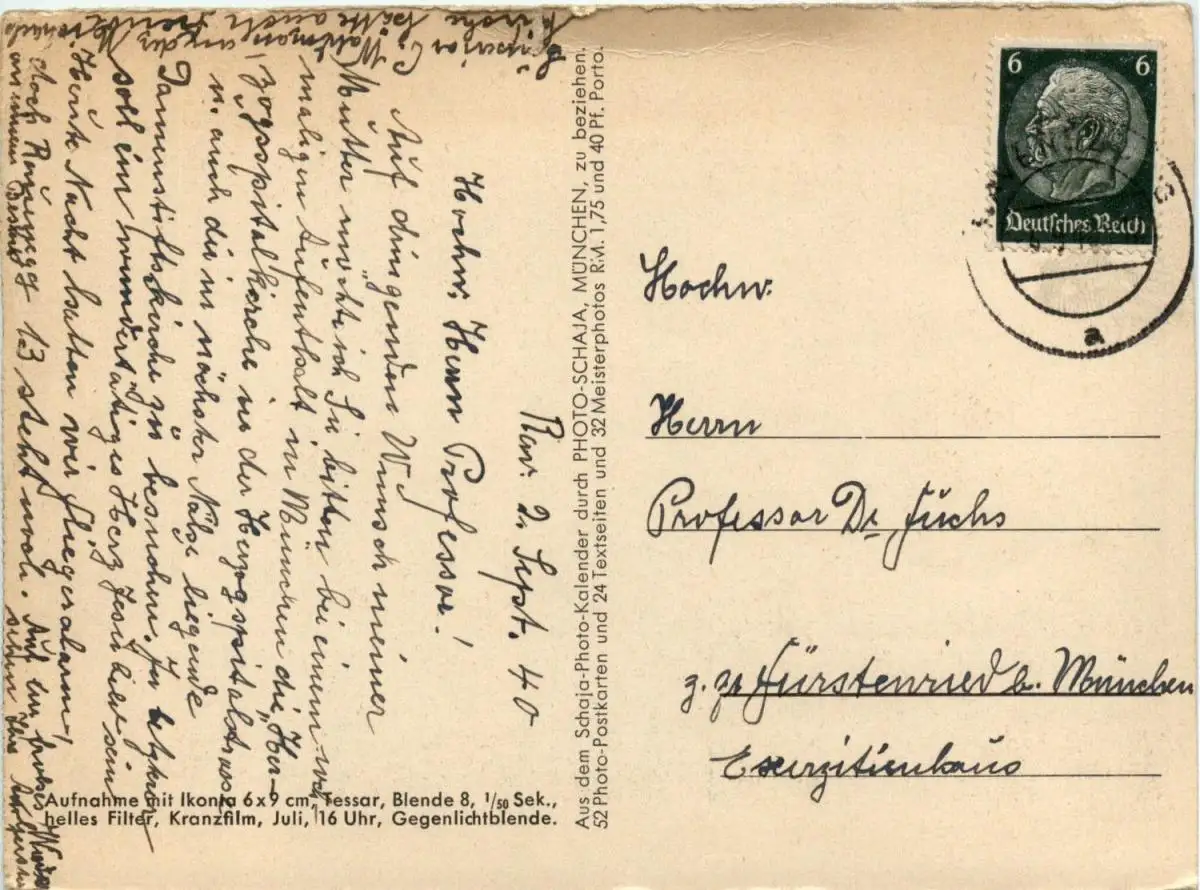 Rav. 2. Sept. 40
Hochw. Herrn Professor!
Auf dringenden Wunsch meiner
Mutter möchte ich Sie bitten bei einem noch
maligen Aufenthalt in München die "Her-
zogspitalkirche in der Herzogspitalstrasse
u. auch die in nächster Nähe liegende
Dammstiftskirche zu besuchen. In letzterer
soll ein wundertätiges Herz Jesu Bild sein
Heute Nacht hatten wir Fliegeralarm,
doch Rauenegg 13 steht noch. Auf ein frohes
Aus dem Schaja-Photo-Kalender durch PHOTO-SCHAJA, MÜNCHEN, zu beziehen.
52 Photo-Postkarten und 24 Textseiten und 32 Meisterphotos R.M. 1,75 und 40 Pf. Porto.
Aufnahme mit Ikonta 6x9 cm, Tessar, Blende 8, 1/50 Sek.,
helles Filter, Kranzfilm, Juli, 16 Uhr, Gegenlichtblende.
6 6
Deutsches Reich
a
Hochw.
Herrn
Professor Dr. Fuchs
z. Zt. Fürstenried b. München
Exerzitienhaus